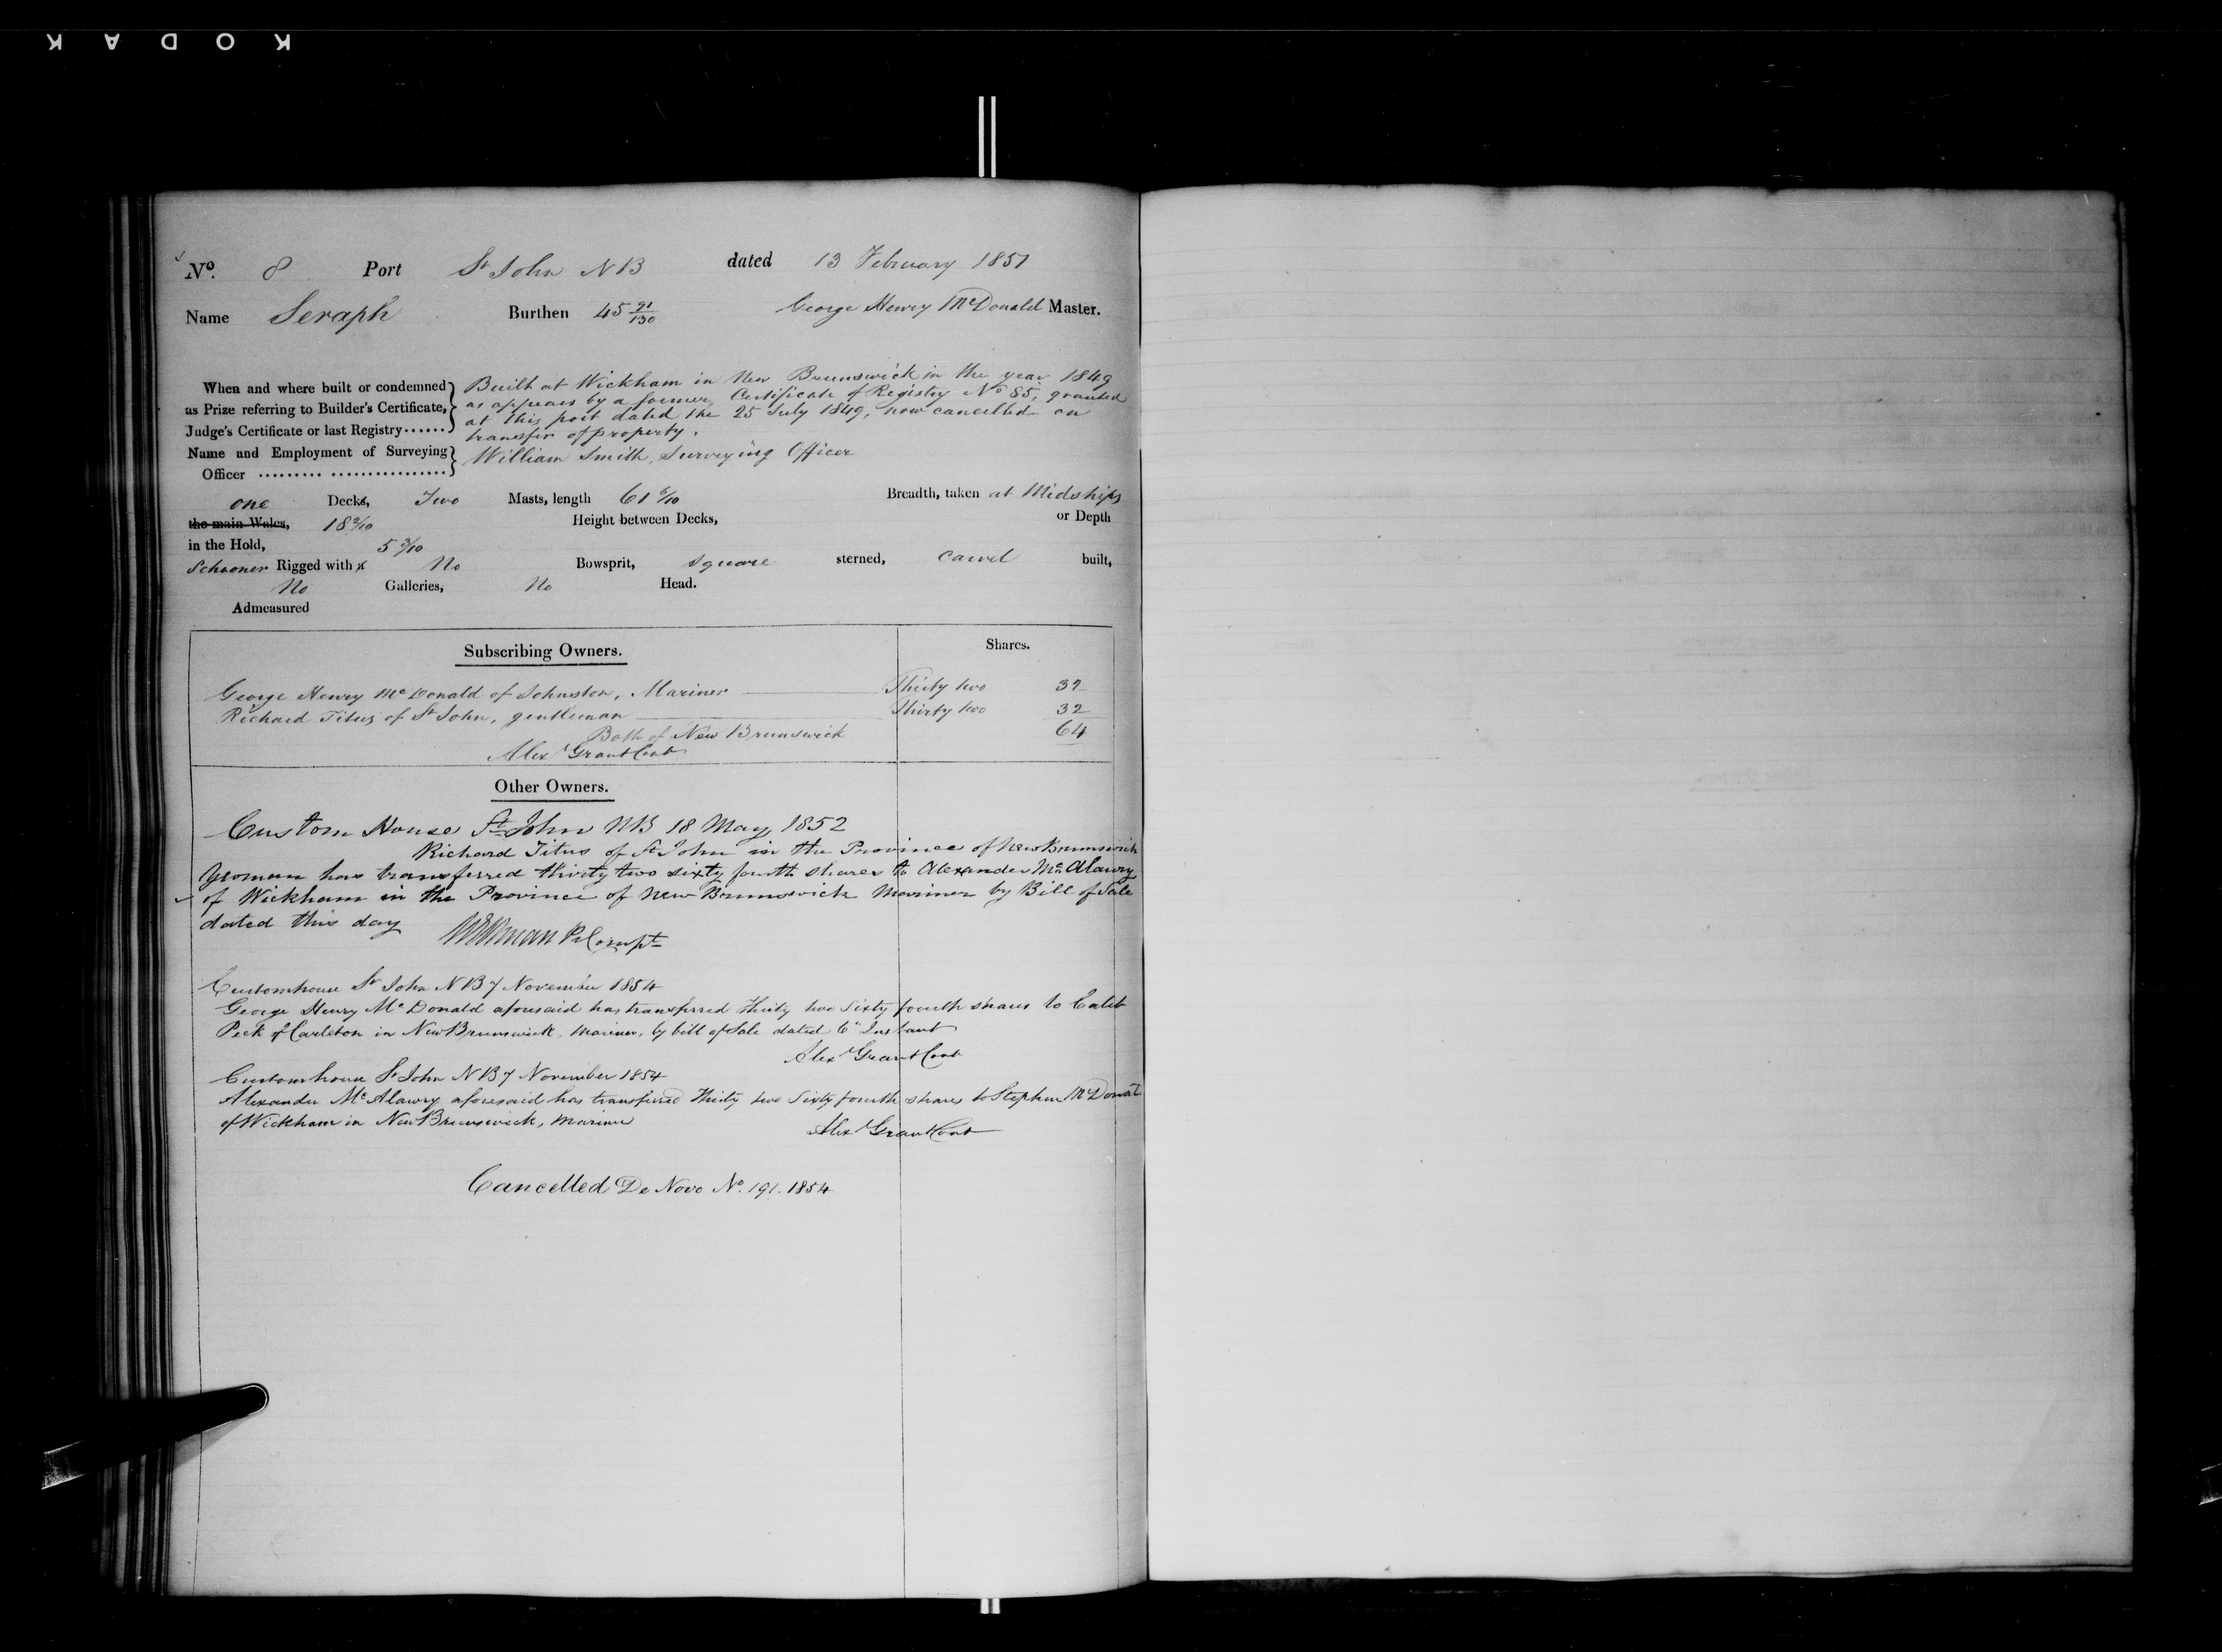 KODAK
No. 8 Port St John NB dated 13 February 1851
Name Seraph Burthen 45 91/130 George Henry McDonald Master.
When and where built or condemned as Prize referring to Builder's Certificate, Judge's Certificate or last Registry......
Built at Wickham in New Brunswick in the year 1849
as appears by a former Certificate of Registry No 85, granted
at this port dated the 25 July 1849, now cancelled on
transfer of property.
Name and Employment of Surveying Officer ......... ................
William Smith, Surveying Officer
one Decks, Two Masts, length 61 /10 Breadth, taken at Midships
the main Wales, 18 /10 Height between Decks, or Depth
in the Hold, 5 /10
Schooner Rigged with a No Bowsprit, square sterned, carvel built,
No Galleries, No Head.
Admeasured
Subscribing Owners. Shares.
George Henry McDonald of Johnston, Mariner Thirty two 32
Richard Titus of St John, gentleman Thirty two 32
Both of New Brunswick 64
Alexr Grant Cont
Other Owners.
Custom House St John NB 18 May 1852
Richard Titus of St John in the Province of New Brunswick
Yeoman has transferred thirty two sixty fourth shares to Alexander McAlawry
of Wickham in the Province of New Brunswick Mariner by Bill of Sale
dated this day
Compt
Customhouse St John NB 7 November 1854
George Henry McDonald aforesaid has transferred Thirty two Sixty fourth shares to Caleb
Peck of Carleton in New Brunswick, Mariner, by bill of Sale dated 6" Instant
Alexr Grant Cont
Customhouse St John NB 7 November 1854
Alexander McAlawry aforesaid has transferred Thirty two Sixty fourth shares to Stephen McDonal
of Wickham in New Brunswick, Mariner
Alexr Grant Cont
Cancelled De Novo No. 191. 1854